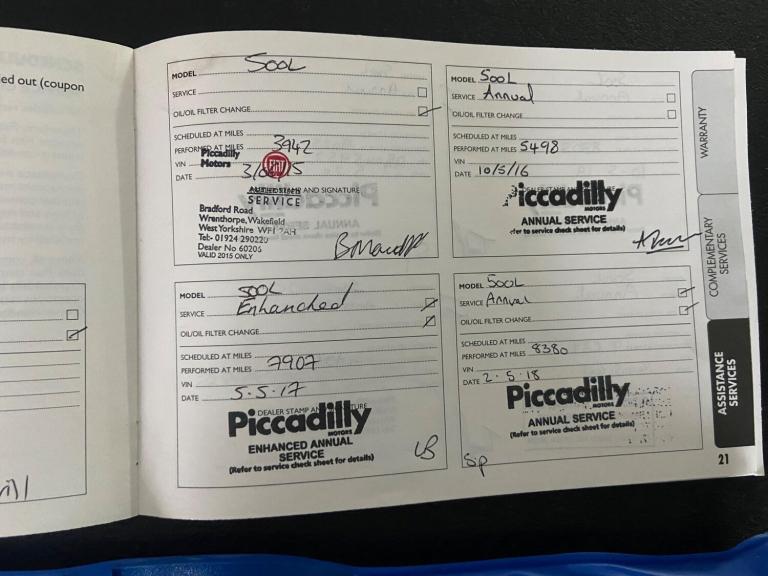 ed out (coupon
MODEL 500L
SERVICE
OIL/OIL FILTER CHANGE
SCHEDULED AT MILES
PERFORMED AT MILES 3942
VIN
DATE
Piccadilly
Motors
FIAT
AUTHORISED AND SIGNATURE
SERVICE
Bradford Road
Wrenthorpe, Wakefield
West Yorkshire WF1 2AH
Tel:- 01924 290220
Dealer No 60206
VALID 2015 ONLY
MODEL 500L
SERVICE Annual
OIL/OIL FILTER CHANGE
SCHEDULED AT MILES
PERFORMED AT MILES 5498
VIN
DATE 10/5/16
Piccadilly
MOTORS
ANNUAL SERVICE
(Refer to service check sheet for details)
MODEL 500L
SERVICE Enhanched
OIL/OIL FILTER CHANGE
SCHEDULED AT MILES
PERFORMED AT MILES 7907
VIN
DATE 5.5.17
DEALER STAMP AND SIGNATURE
Piccadilly
MOTORS
ENHANCED ANNUAL
SERVICE
(Refer to service check sheet for details)
LB
MODEL 500L
SERVICE Annual
OIL/OIL FILTER CHANGE
SCHEDULED AT MILES
PERFORMED AT MILES 8380
VIN
DATE 2.5.18
Piccadilly
MOTORS
ANNUAL SERVICE
(Refer to service check sheet for details)
SP
WARRANTY
COMPLEMENTARY
SERVICES
ASSISTANCE
SERVICES
21